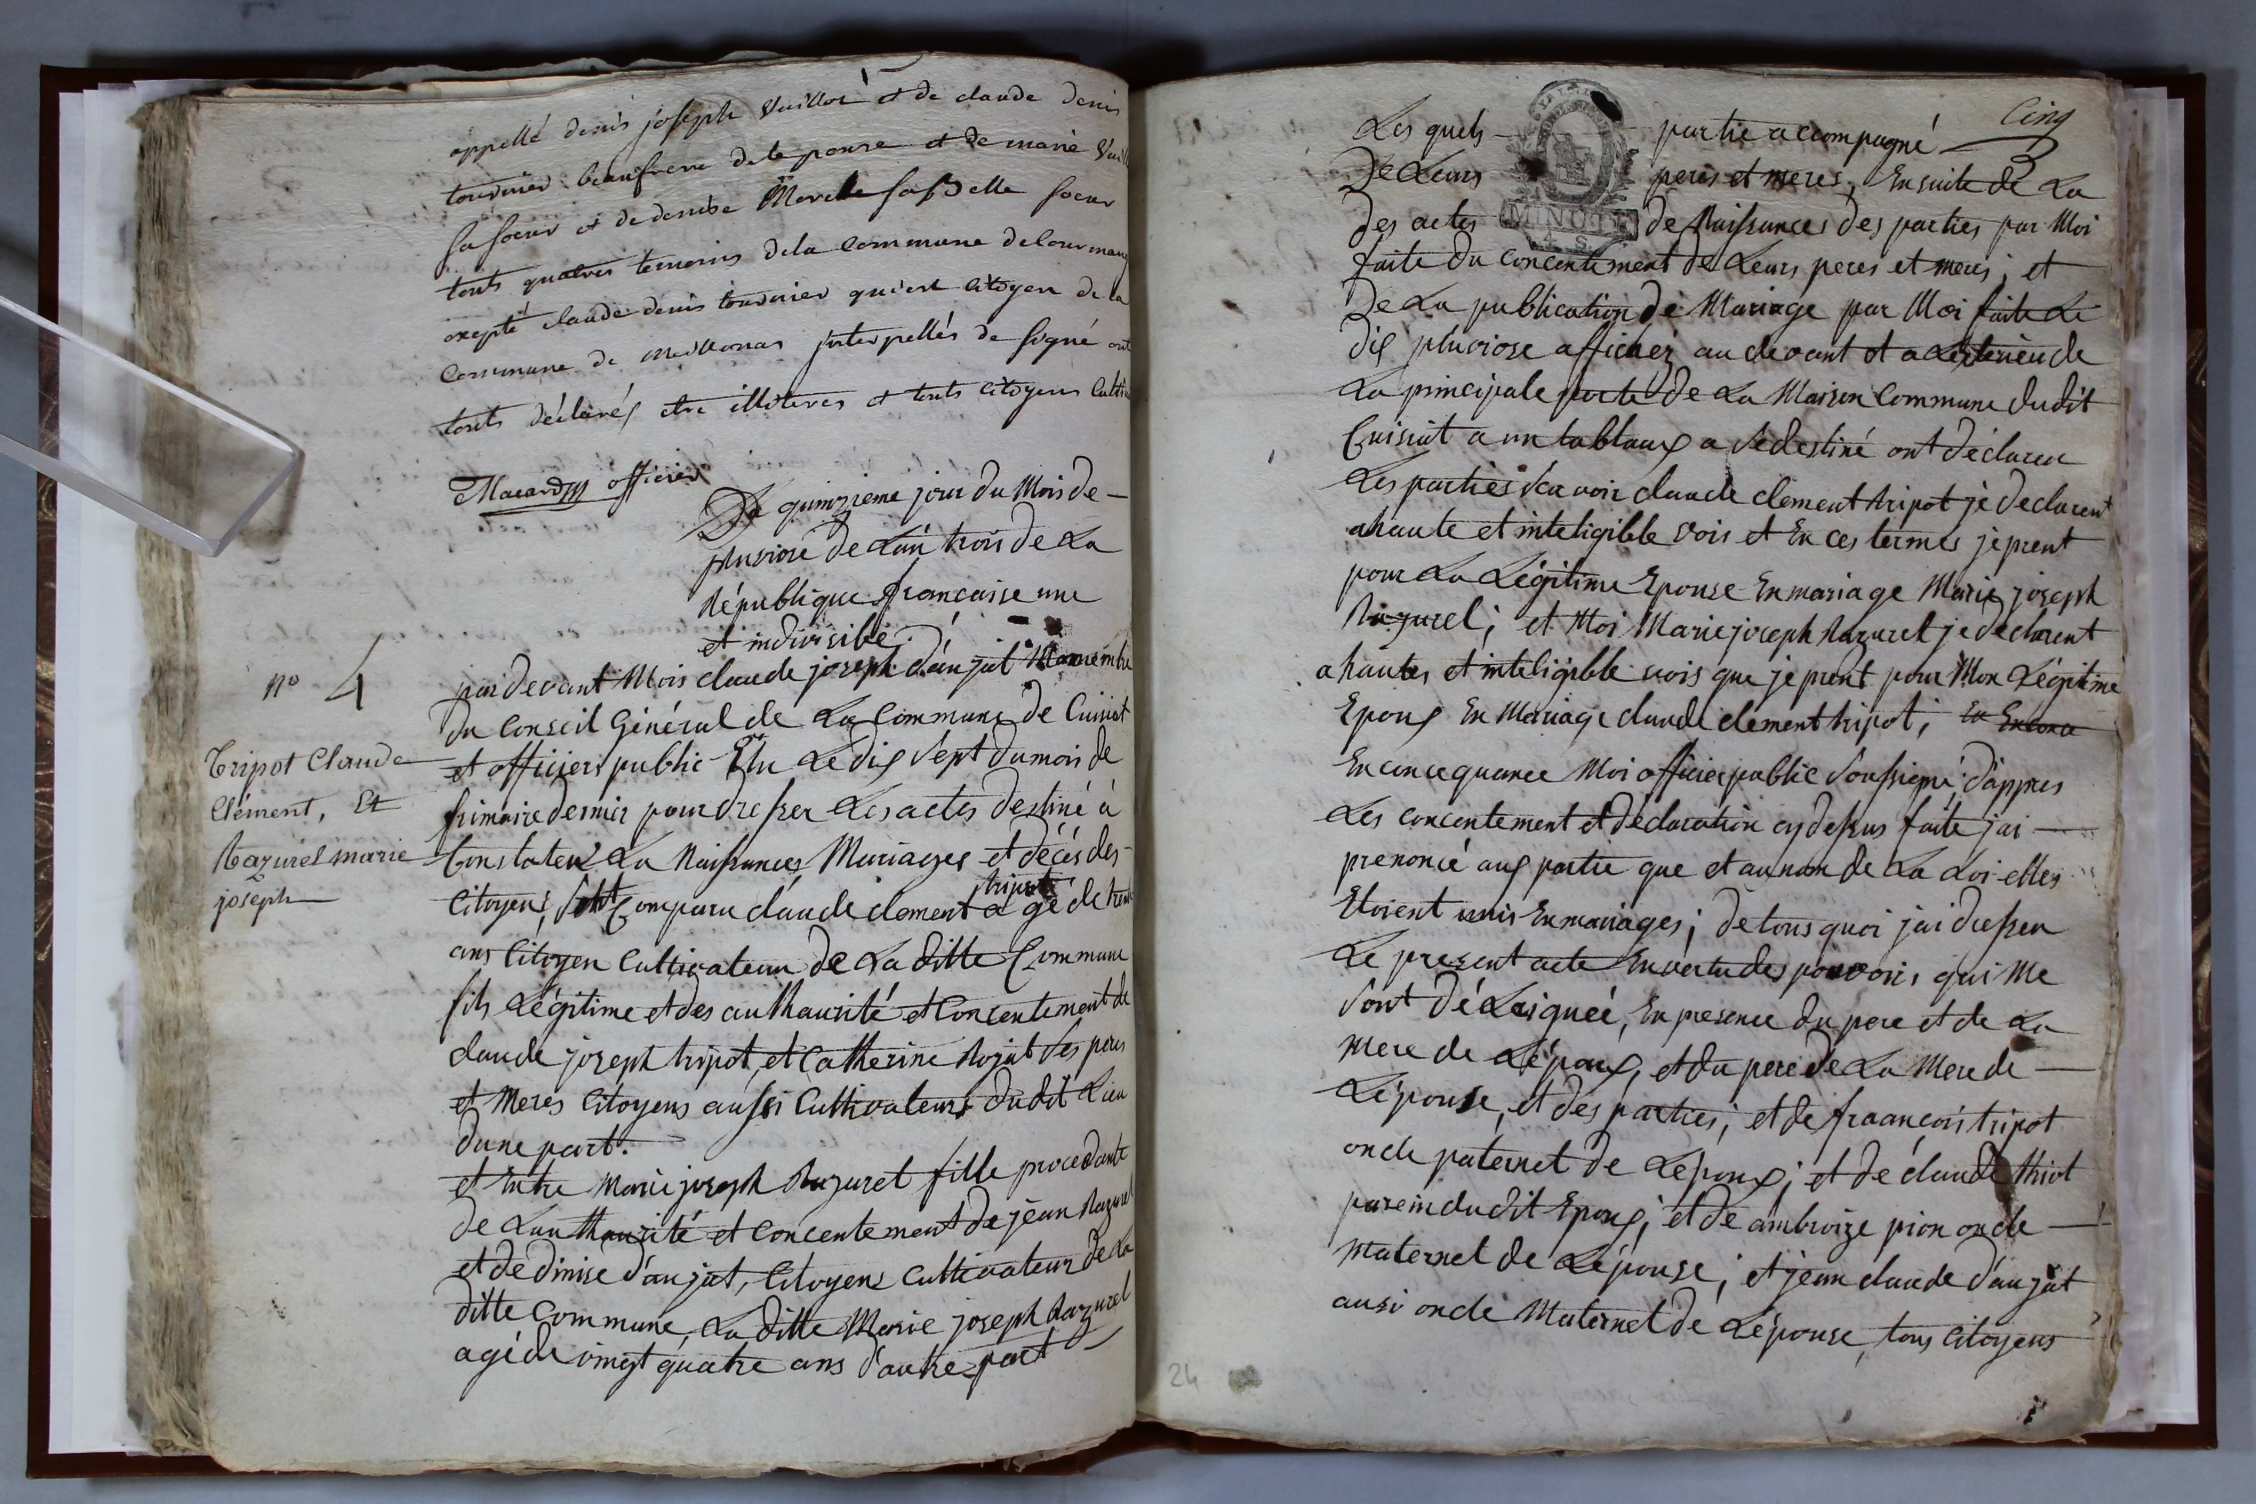 appellé denis joseph Vuillot et de claude denis
tournier beaufrere de le pouse et de marie
sa soeur et de denise Morelle sa belle soeur
touts quatres temoins de la commune de Courmang
exepté claude denis tournier qui est citoyen de la
commune de meillonas interpellés de signé ont
touts déclarés etre illiteres et touts citoyens
officier
Le quinzieme jour du Mois de
pluviose de Lan trois de La
République francaise une
et indivisible
n° 4
par devant Mois claude joseph d'anjat membre
du Conseil Général de La Commune de Cuisiat
et officiers public Elu Le dix sept du mois de
frimaire dernier pour dresser Les actes destiné à
Constater La Naissances Mariages et décés des
Citoyens, sont Comparu claude clement tripot agé de trente
ans Citoyen Cultivateur de La ditte Commune
fils Légitime et des authaurité et Concentement de
claude joseph tripot, et Catherine Rojat ses peres
et Meres Citoyens aussi Cultivateurs dudit Lieu
dune part.
et Entre Marie joseph Razurel fille procedante
de Lauthaurité et Concentement de jean Razurel
et de dinise d'anjat, Citoyens Cultivateur de La
ditte Commune, La ditte Marie joseph Razurel
agé de vingt quatre ans d'autre part
Tripot Claude
Clément, Et
Razurel marie
joseph
Cinq
Les quels partie accompagné
De Leurs peres et meres, Ensuite de La
Des actes de Naissances des parties par Moi
MINUTE
4. S.
faite du concentement de Leurs peres et meres; et
De La publication de Mariage par Moi faite Le
dix pluviose afficher au devant et a Lexterieu de
La principale porte de La Maison Commune dudit
Cuisiat a un tablaux a se destiné ont déclarer
Les parties savoir claude clement tripot je declarent
a haute et inteligible vois et En ces termes je prent
pour La Légitime Epouse En mariage Marie joseph
Razurel; et Moi Marie joseph Razurel je declarent
a hautes et inteligible vois que je prent pour Mon Légitime
Epoux En Mariage claude clement tripot; En Encona
En concequance Moi officier public soussigné d'appres
Les concentement et déclaration cy dessus faite jai
prenoncé aux partie que et au nom de La Loi elles
Etoient unis En mariages; de tous quoi jai dresser
Le present acte En vertu des pouvoirs qui Me
sont déLaiguéé, En presence du pere et de La
mere de Lépoux, et du pere de La Mere de
Lépouse, et des parties; et de fraancois tripot
oncle paternel de Lépoux; et de claude thiot
parein dudit Epoux; et de ambroize pion oncle
maternel de Lépouse; et jean claude d'anjat
ausi oncle Maternel de Lépouse, tous Citoyens
24